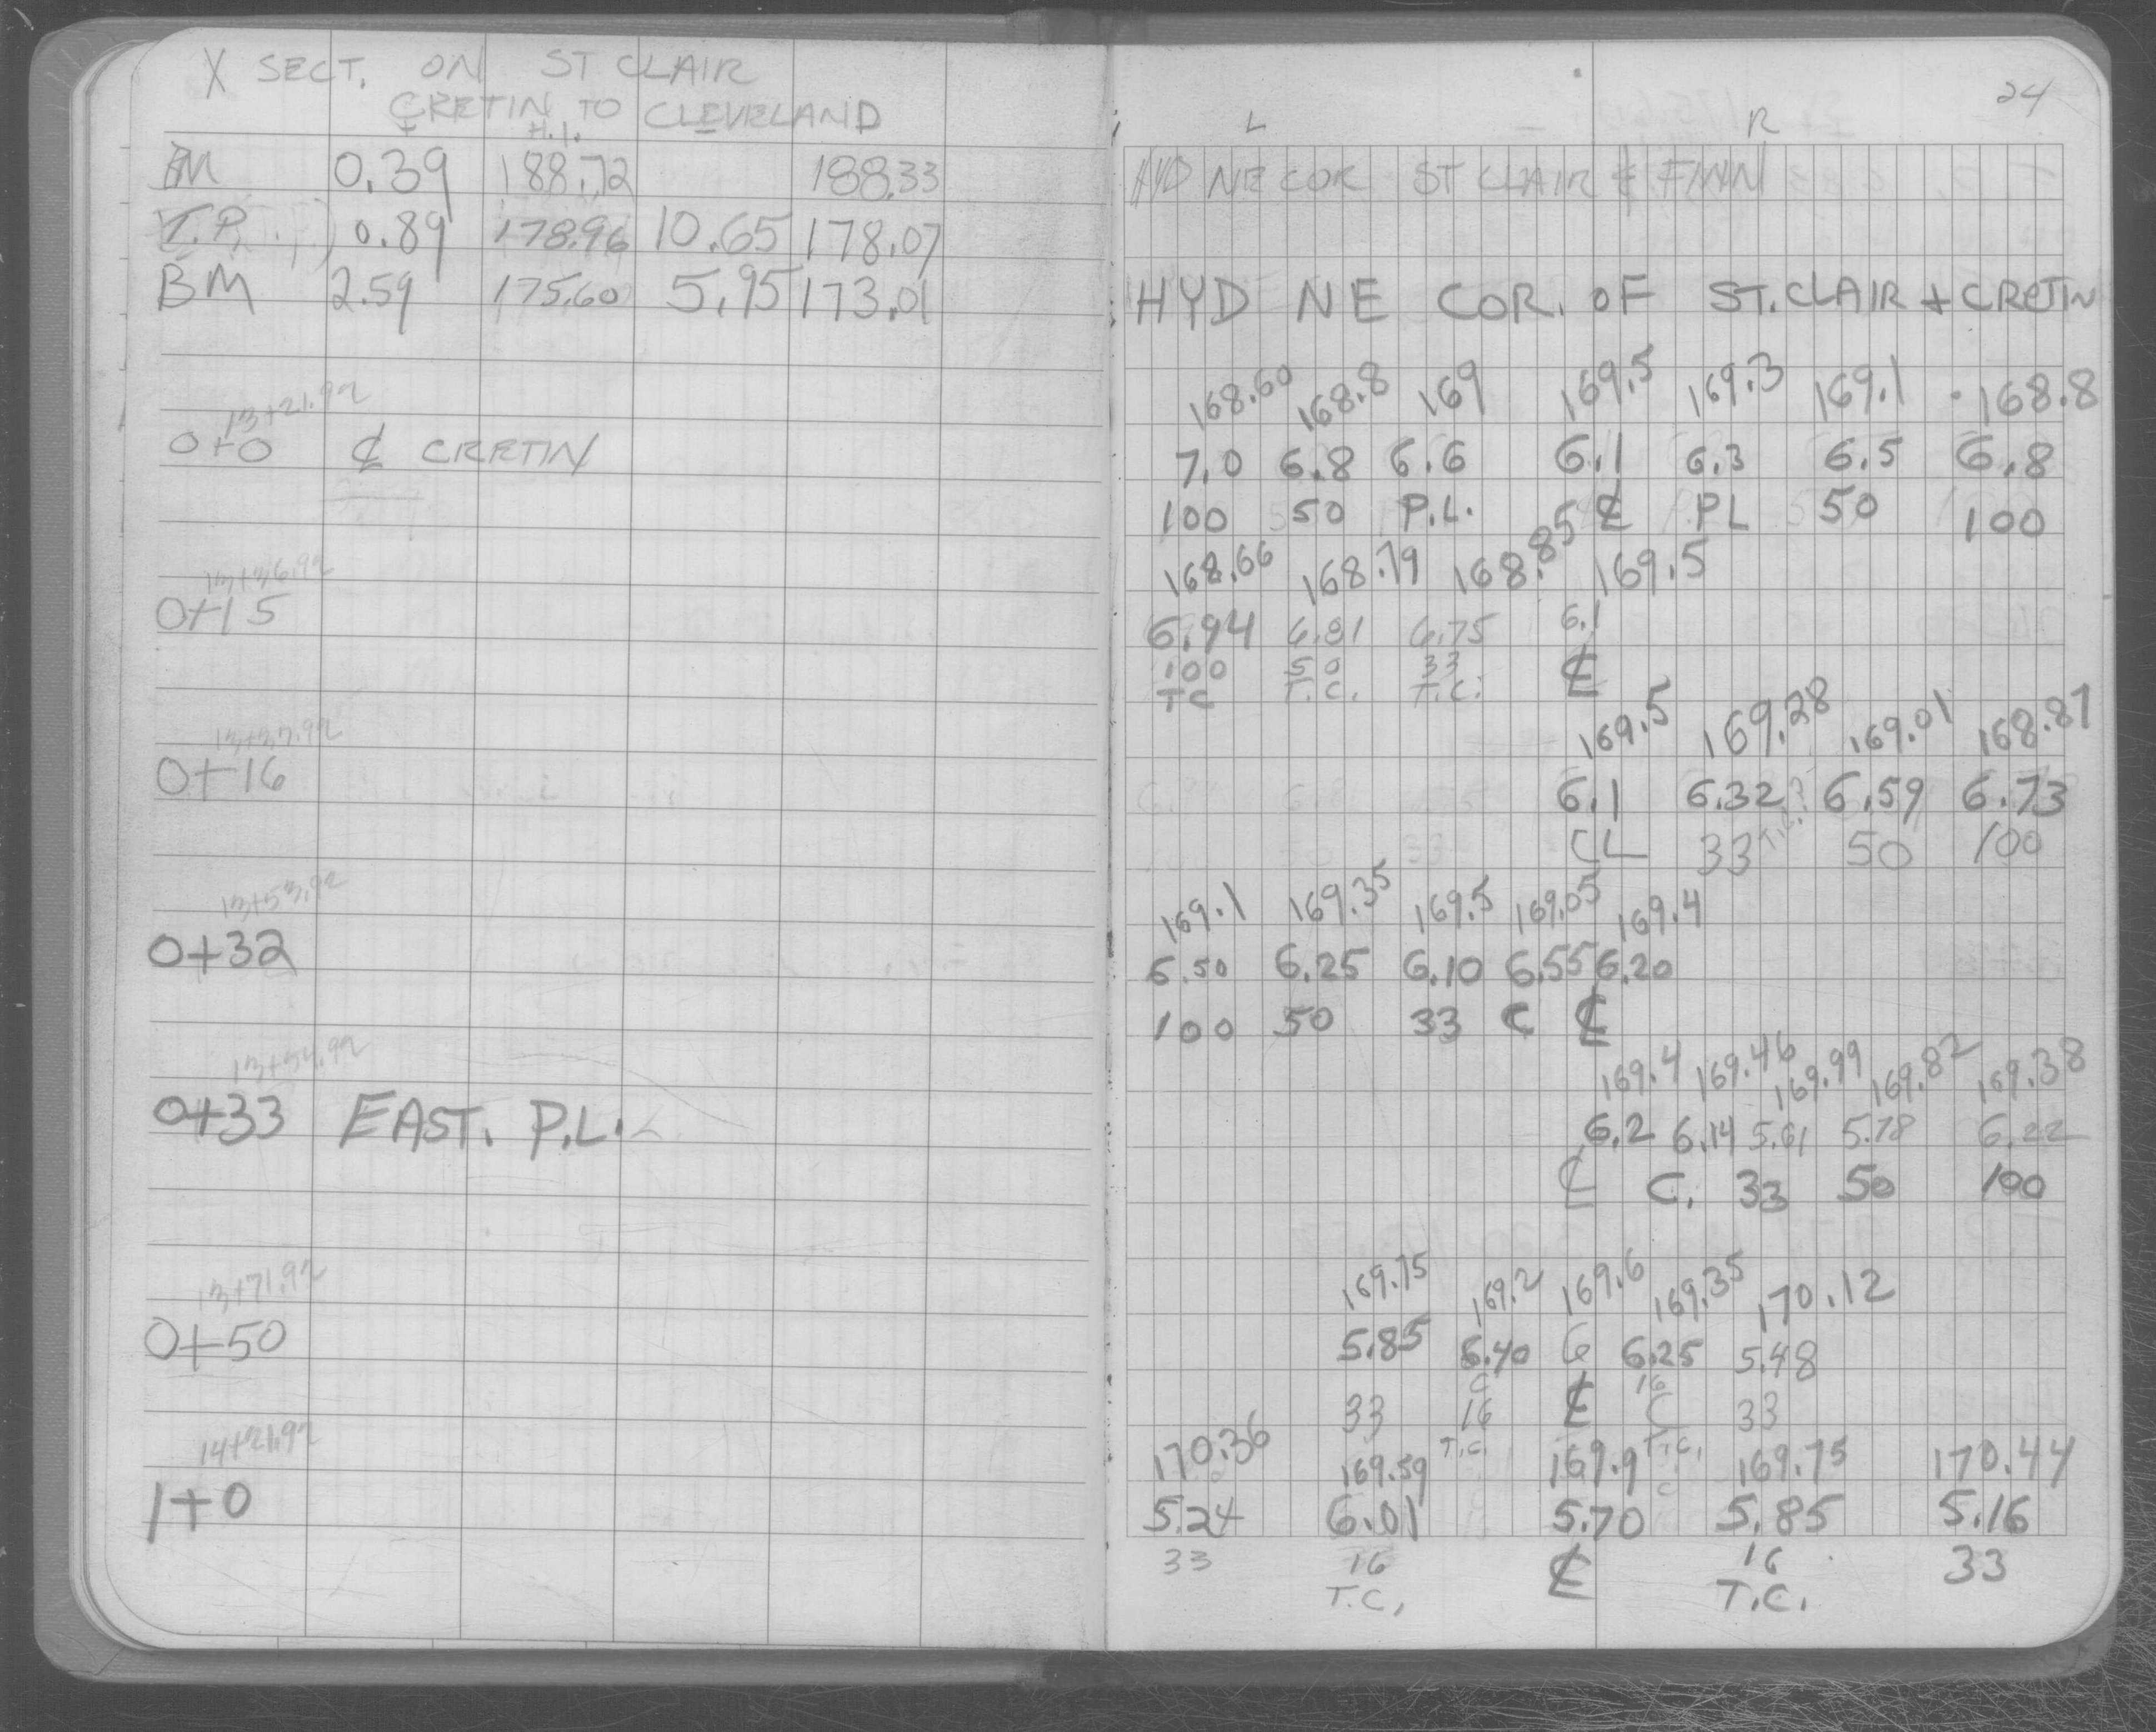 X SECT. ON ST CLAIR
CRETIN TO CLEVELAND
+ H.I.
BM 0.39 188.72 188.33
T.P. 0.89 178.96 10.65 178.07
BM 2.59 175.60 5.95 173.01
13+21.92
0+0 ℄ CRETIN
13+36.92
0+15
13+37.92
0+16
13+53.92
0+32
13+54.92
0+33 EAST. P.L.
13+71.92
0+50
14+21.92
1+0
24
L R
HYD NE COR ST CLAIR & FINN
HYD NE COR. OF ST. CLAIR + CRETIN
168.60 168.8 169 169.5 169.3 169.1 168.8
7.0 6.8 6.6 6.1 6.3 6.5 6.8
100 50 P.L. ℄ PL 50 100
168.66 168.79 168.85 169.5
6.94 6.81 6.75 6.1
100 50 33 ℄
TC T.C. T.C.
169.5 169.28 169.01 168.87
6.1 6.32 6.59 6.73
CL 33 T.C. 50 100
169.1 169.35 169.5 169.05 169.4
6.50 6.25 6.10 6.55 6.20
100 50 33 C ℄
169.4 169.46 169.99 169.82 169.38
6.2 6.14 5.61 5.78 6.22
℄ C. 33 50 100
169.75 169.2 169.6 169.35 170.12
5.85 6.40 6 6.25 5.48
C 16
33 16 ℄ C 33
T.C. T.C.
170.36 169.59 169.9 169.75 170.44
5.24 6.01 5.70 5.85 5.16
33 16 ℄ 16 33
T.C. T.C.